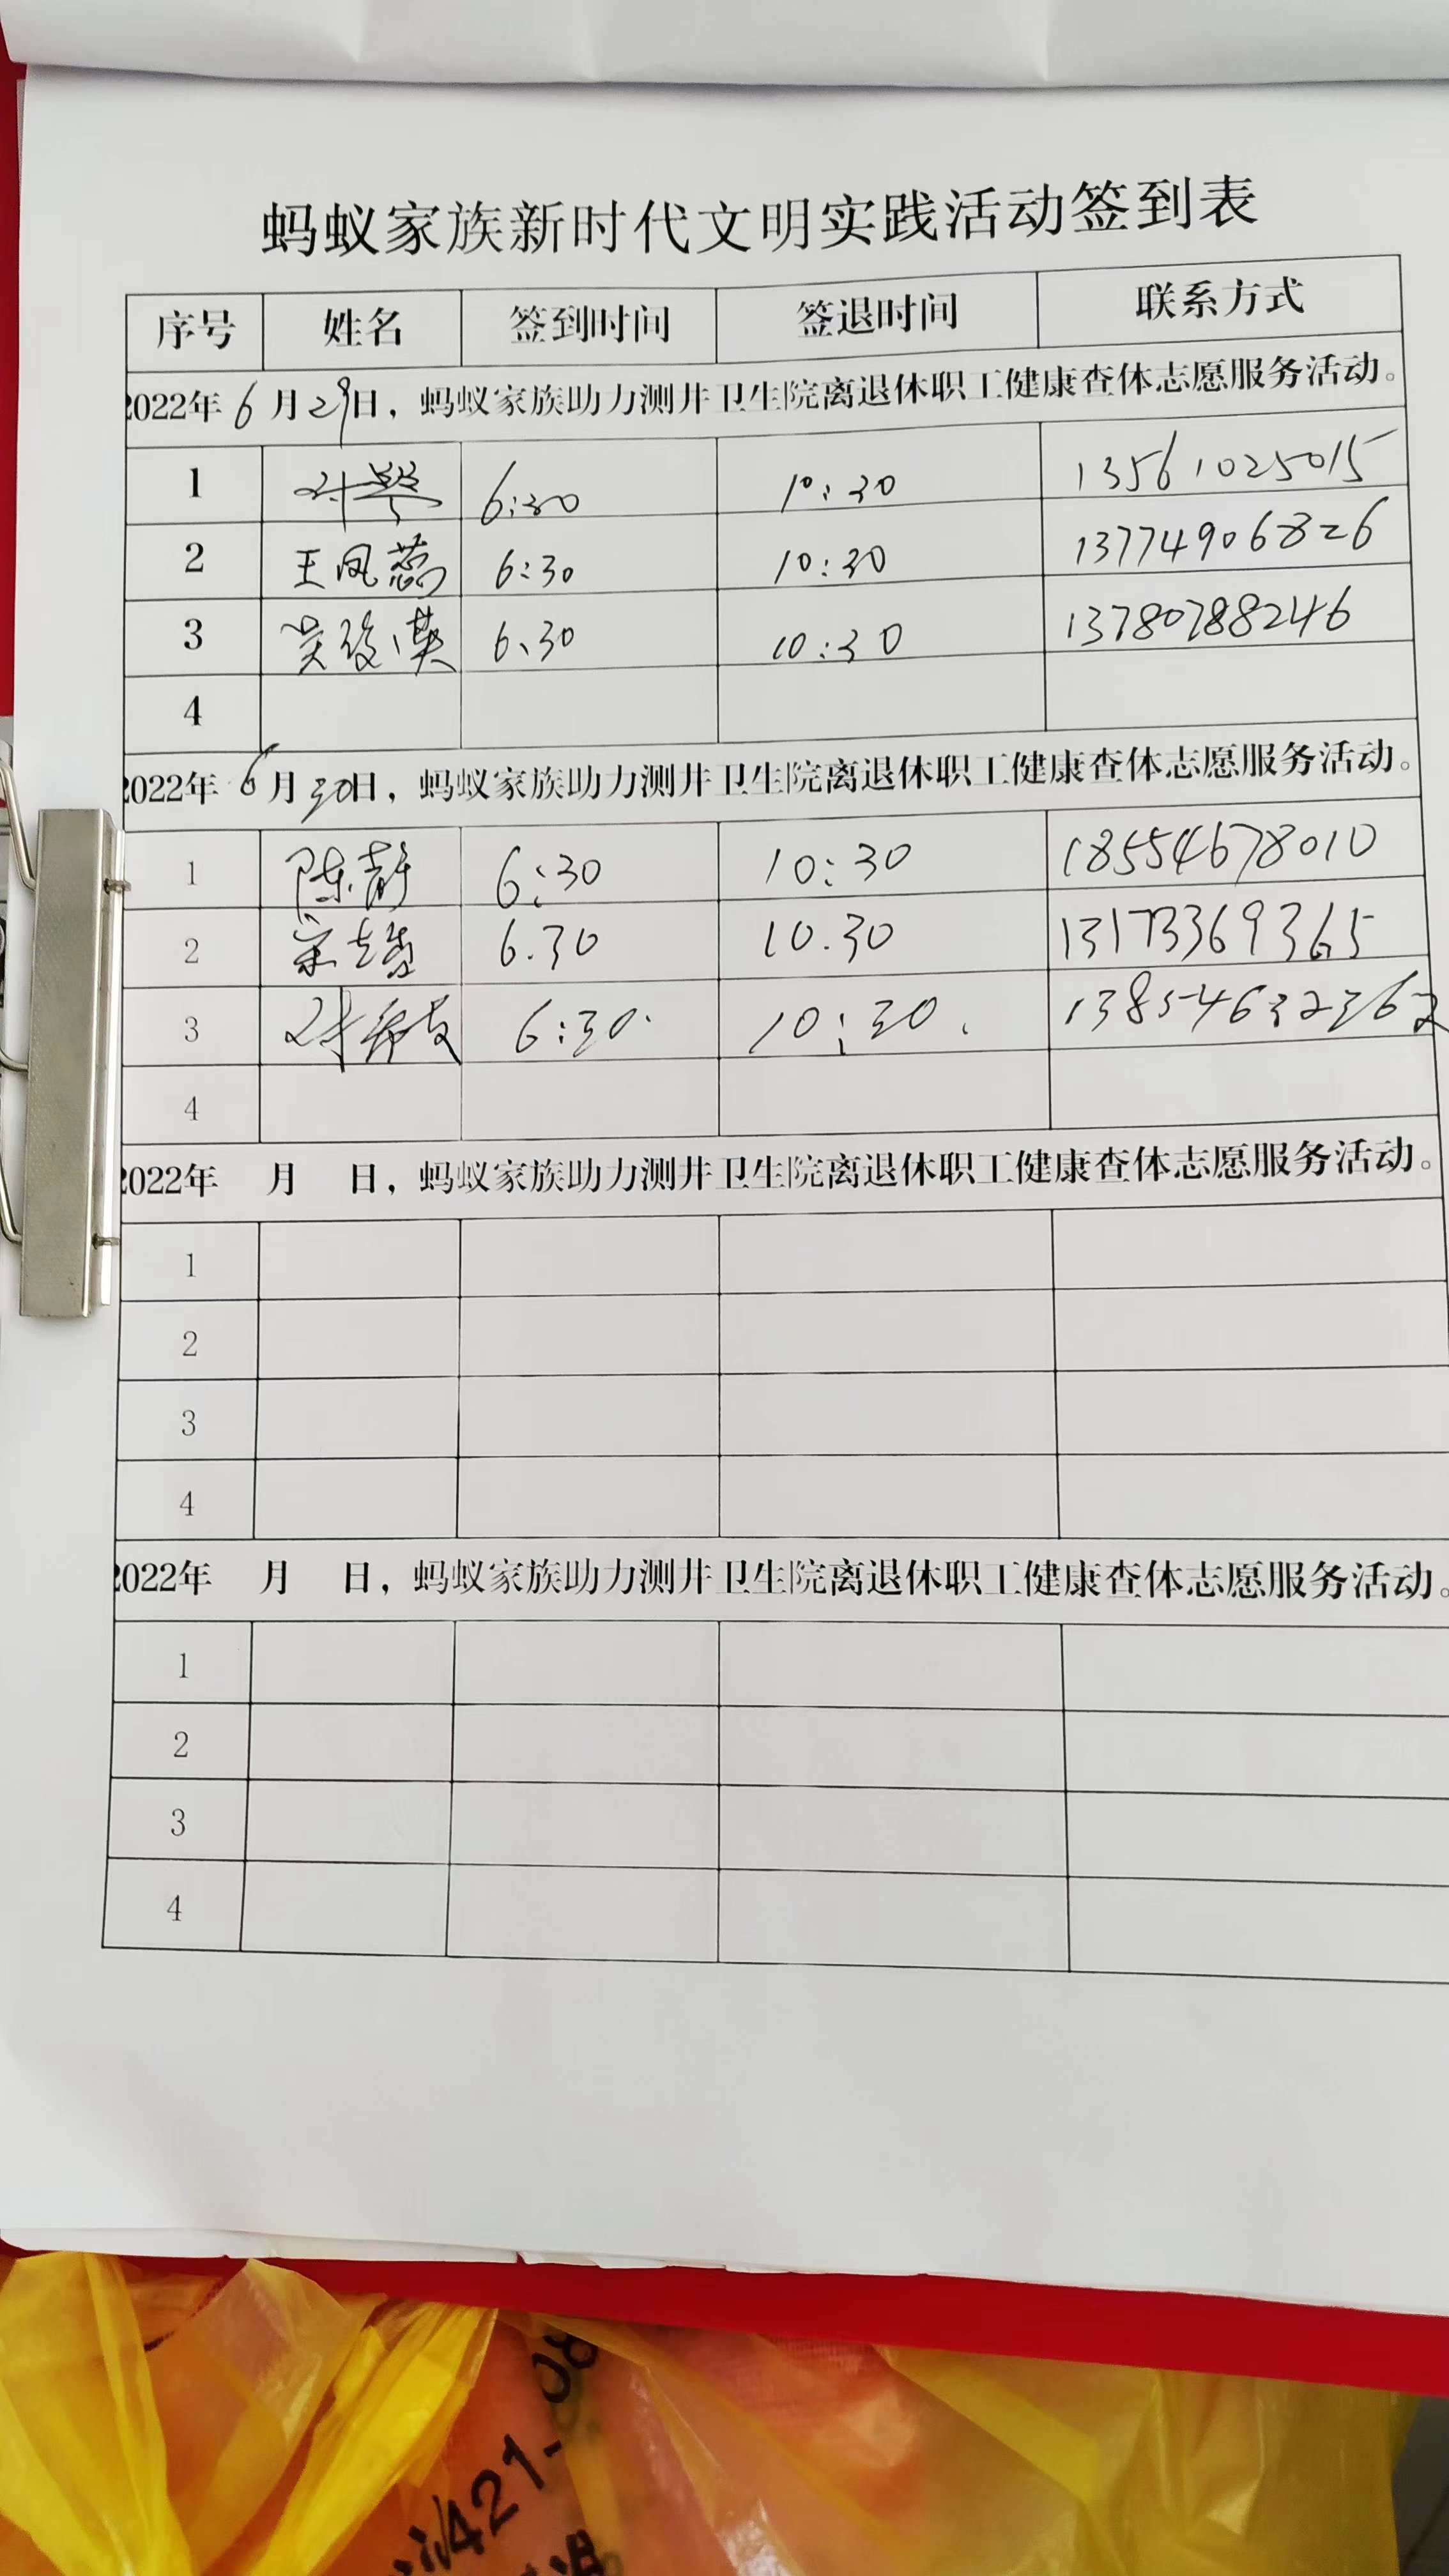 蚂蚁家族新时代文明实践活动签到表
序号 姓名 签到时间 签退时间 联系方式
2022年6月29日，蚂蚁家族助力测井卫生院离退休职工健康查体志愿服务活动。
1 6:30 10:30 13561025015
2 王凤蕊 6:30 10:30 13774906826
3 6:30 10:30 13780788246
4
2022年6月30日，蚂蚁家族助力测井卫生院离退休职工健康查体志愿服务活动。
1 陈静 6:30 10:30 18554678010
2 6.30 10.30 13173369365
3 6:30. 10:30.
4
2022年 月 日，蚂蚁家族助力测井卫生院离退休职工健康查体志愿服务活动。
1
2
3
4
2022年 月 日，蚂蚁家族助力测井卫生院离退休职工健康查体志愿服务活动。
1
2
3
4